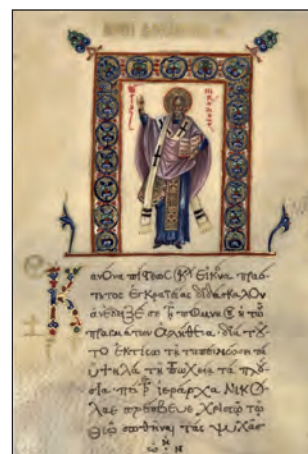 Κανόνα πίστεως (κ) εἰκόνα πραό
τητος ἐγκρατείας διδάσκαλον
ἀνέδειξέ σε τῇ ποίμνῃ σου ἡ τῶν
πραγμάτων ἀλήθεια διὰ τοῦ
το ἐκτήσω τῇ ταπεινώσει τὰ
ὑψηλὰ τῇ πτωχείᾳ τὰ πλού
σια ἱεράρχα Νικό
λαε πρέσβευε Χριστῷ τῷ
Θεῷ σωθῆναι τὰς ψυχὰς